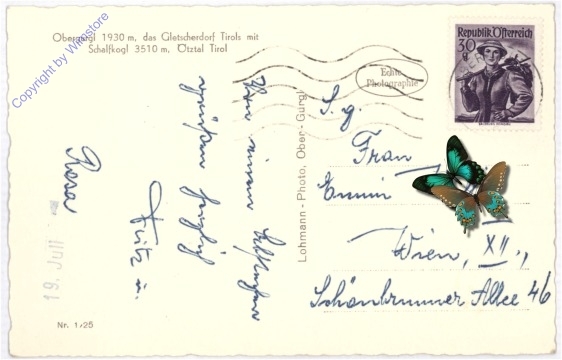 Obergurgl 1930 m, das Gletscherdorf Tirols mit
Schalfkogl 3510 m, Ötztal Tirol
Copyright by Winstore
Republik Österreich
30
g
Echte
Photographie
Lohmann - Photo, Ober - Gurgl
Von einem
grüßen herzlich
Fritz u.
Rosa
S. g.
Frau
Emmi
Wien, XII.,
Schönbrunner Allee 46
19. Juli
Nr. 1/25